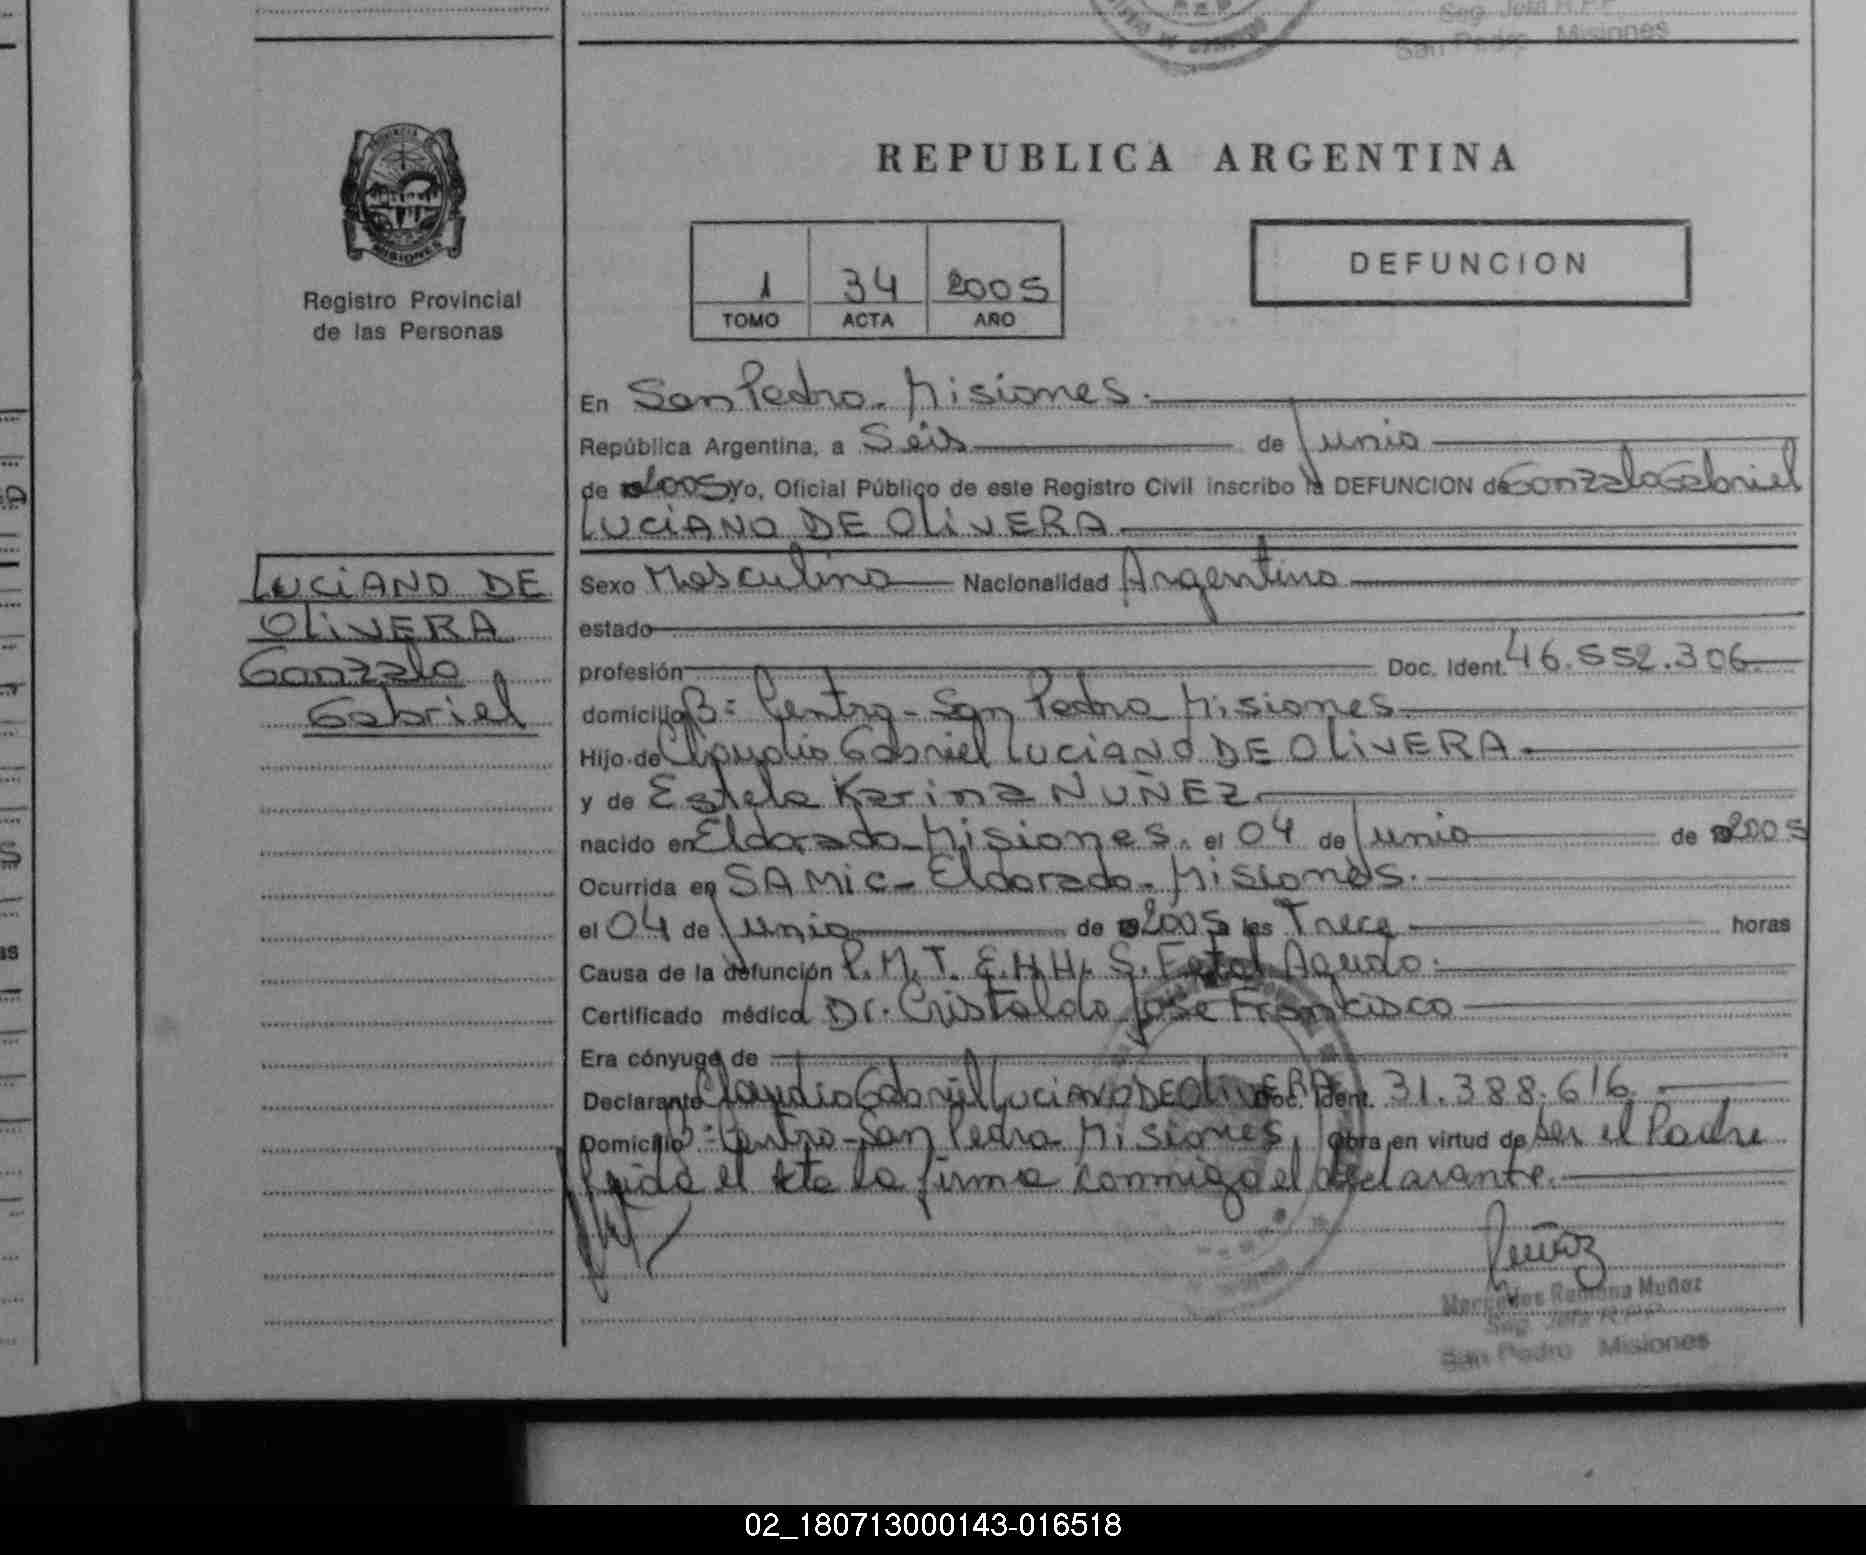 Seg. Jefa R.P.P
San Pedro Misiones
PROVINCIA
MISIONES
Registro Provincial
de las Personas
REPUBLICA ARGENTINA
1 34 2005
TOMO ACTA AÑO
DEFUNCION
En San Pedro - Misiones.
República Argentina, a Seis de Junio
de 2005 Yo, Oficial Público de este Registro Civil inscribo la DEFUNCION de Gonzalo Gabriel
LUCIANO DE OLIVERA
LUCIANO DE
OLIVERA
Gonzalo
Gabriel
Sexo Masculino Nacionalidad Argentino
estado
profesión Doc. Ident. 46.552.306
domicilio B: Centro - San Pedro Misiones
Hijo de Claudio Gabriel LUCIANO DE OLIVERA
y de Estela Karina NUÑEZ
nacido en Eldorado - Misiones. el 04 de Junio de 2005
Ocurrida en SAMIC - Eldorado - Misiones.
el 04 de Junio de 2005 las Trece horas
Causa de la defunción P.M.T. E.H.H. S. Fetal Agudo.
Certificado médico Dr. Cristaldo José Francisco
Era cónyuge de
Declarante Claudio Gabriel LUCIANO DE OLIVERA Doc. Ident. 31.388.616
Domicilio B: Centro - San Pedro Misiones, obra en virtud de ser el Padre
Leida el Acta la firma conmigo el declarante.
Muñoz
Mercedes Ramona Muñoz
Seg. Jefa R.P.P
San Pedro Misiones
02_180713000143-016518